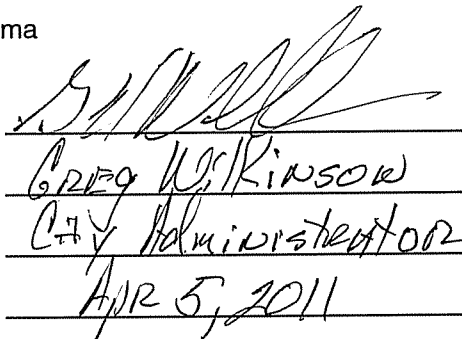 ma
Greg Wilkinson
City Administrator
Apr 5, 2011